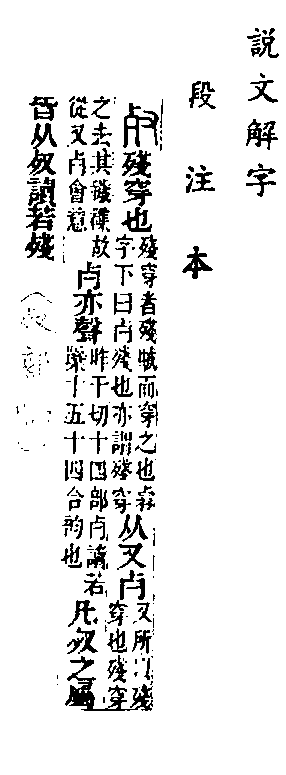 說文解字
段注本
𣦼殘穿也殘穿者殘賊而穿之也字下曰歺殘也亦謂殘穿从又歺又所㠯殘穿也殘穿
之去其殘穢故從又歺會意歺亦聲昨干切十四部歺讀若櫱十五十四合韵也凡𣦼之屬
皆从𣦼讀若殘